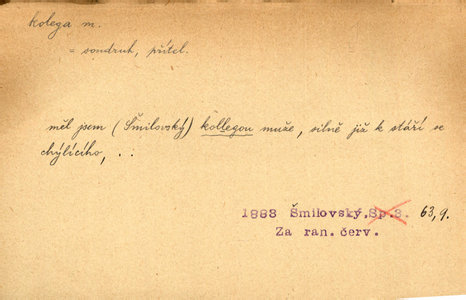 kolega m.
= soudruh, přítel.
měl jsem (Šmilovský) kollegou muže, silně již k stáří se
chýlícího, . .
1883 Šmilovský.Sp.3. 63,9.
Za ran. červ.